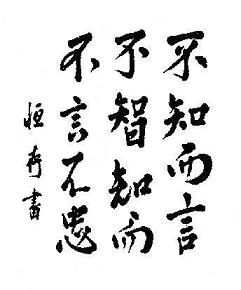 不知而言
不智知而
不言不忠
恒 書